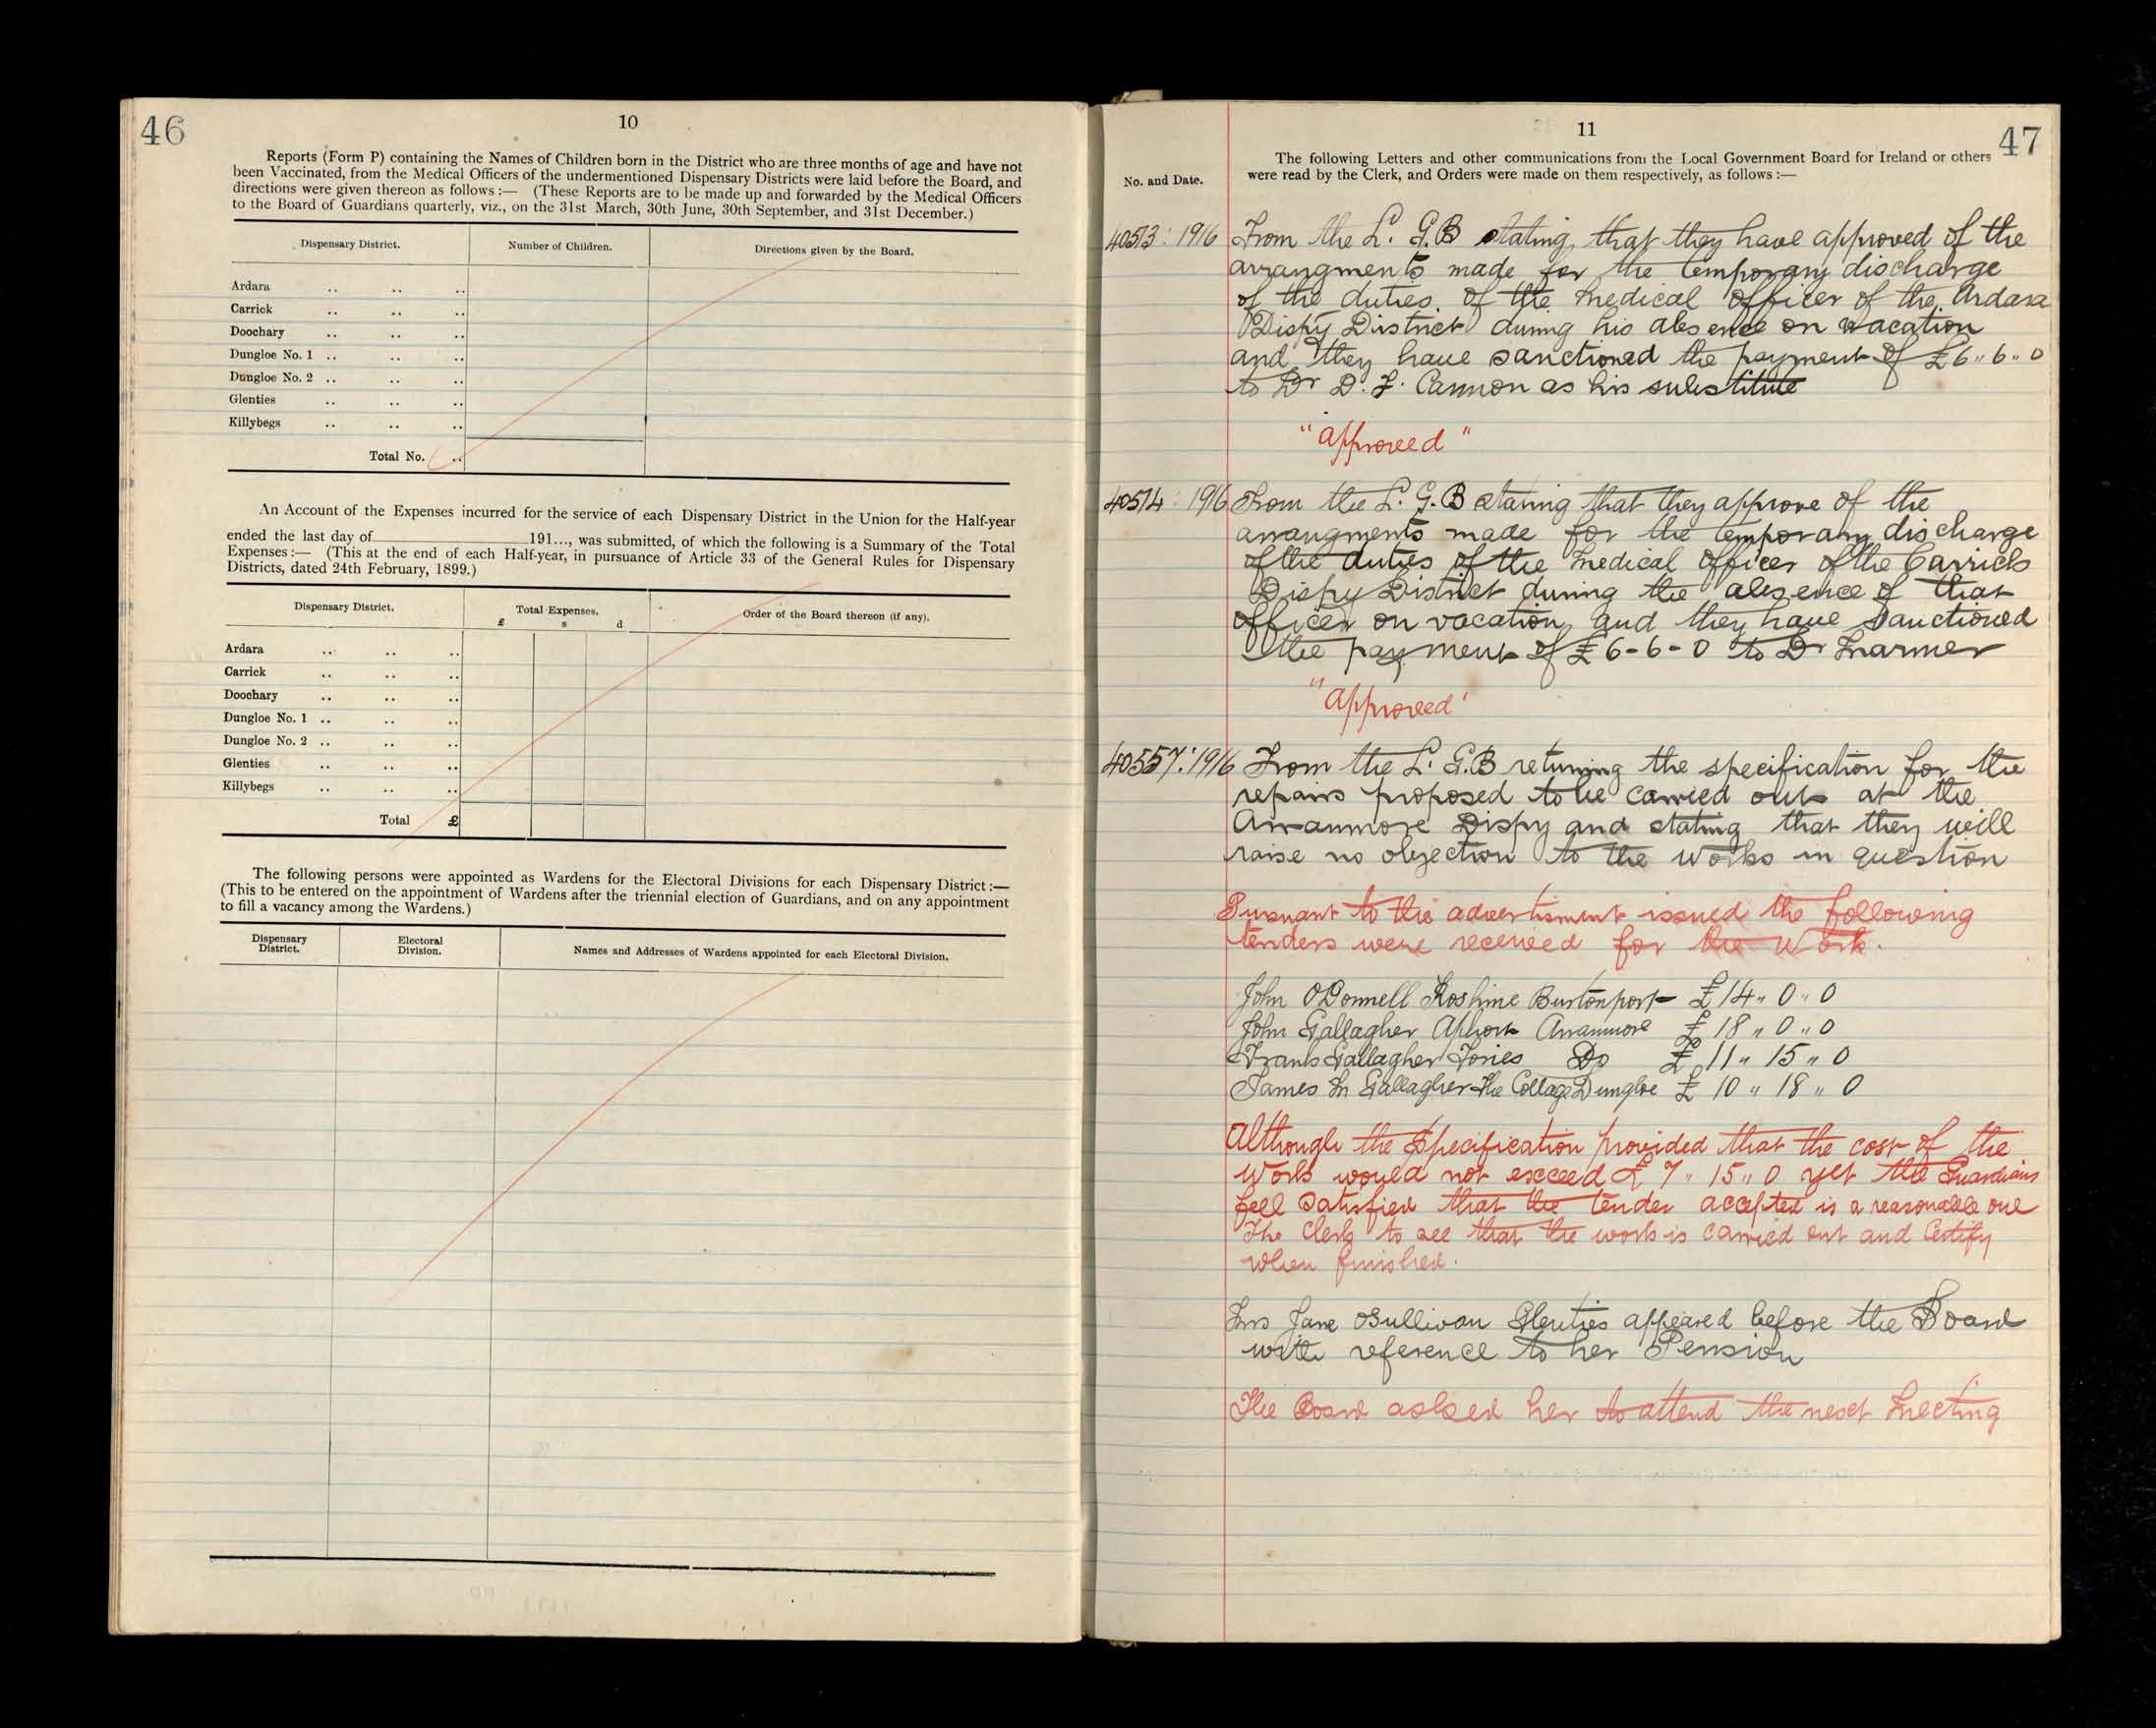 46
10
Reports (Form P) containing the Names of Children born in the District who are three months of age and have not
been Vaccinated, from the Medical Officers of the undermentioned Dispensary Districts were laid before the Board, and
directions were given thereon as follows :— (These Reports are to be made up and forwarded by the Medical Officers
to the Board of Guardians quarterly, viz., on the 31st March, 30th June, 30th September, and 31st December.)
Dispensary District. Number of Children. Directions given by the Board.
Ardara .. .. ..
Carrick .. .. ..
Doochary .. .. ..
Dungloe No. 1 .. .. ..
Dungloe No. 2 .. .. ..
Glenties .. .. ..
Killybegs .. .. ..
Total No. ..
An Account of the Expenses incurred for the service of each Dispensary District in the Union for the Half-year
ended the last day of 191..., was submitted, of which the following is a Summary of the Total
Expenses :— (This at the end of each Half-year, in pursuance of Article 33 of the General Rules for Dispensary
Districts, dated 24th February, 1899.)
Dispensary District. Total Expenses. Order of the Board thereon (if any).
£ s d
Ardara .. .. ..
Carrick .. .. ..
Doochary .. .. ..
Dungloe No. 1 .. .. ..
Dungloe No. 2 .. .. ..
Glenties .. .. ..
Killybegs .. .. ..
Total £
The following persons were appointed as Wardens for the Electoral Divisions for each Dispensary District :—
(This to be entered on the appointment of Wardens after the triennial election of Guardians, and on any appointment
to fill a vacancy among the Wardens.)
Dispensary District. Electoral Division. Names and Addresses of Wardens appointed for each Electoral Division.
11
47
No. and Date.
The following Letters and other communications from the Local Government Board for Ireland or others
were read by the Clerk, and Orders were made on them respectively, as follows :—
40513 : 1916 From the L. G. B stating that they have approved of the
arrangments made for the temporary discharge
of the duties of the medical officer of the Ardara
Dispy District during his absence on vacation
and they have sanctioned the payment of £6 " 6 " 0
to Dr D. F. Cannon as his substitute
"approved"
40514 : 1916 From the L. G. B stating that they approve of the
arrangments made for the temporary discharge
of the duties of the medical officer of the Carrick
Dispy District during the absence of that
officer on vacation and they have sanctioned
the payment of £6 - 6 - 0 to Dr
"approved"
40557 : 1916 From the L. G. B returning the specification for the
repairs proposed to be carried out at the
Arranmore Dispy and stating that they will
raise no objection to the works in question
Pursuant to the advertisment issued the following
tenders were received for the work.
John O'Donnell Roshine Burtonport £14 " 0 " 0
John Gallagher Aphort Arranmore £18 " 0 " 0
Frank Gallagher Do £11 " 15 " 0
James M Gallagher The Cottage Dungloe £10 " 18 " 0
Although the specification provided that the cost of the
work would not exceed £7 " 15 " 0 yet the Guardians
feel satisfied that the tender accepted is a reasonable one
The Clerk to see that the work is carried out and Certify
when finished.
Mrs Jane O'Sullivan Glenties appeared before the Board
with reference to her Pension
The Board asked her to attend the next Meeting